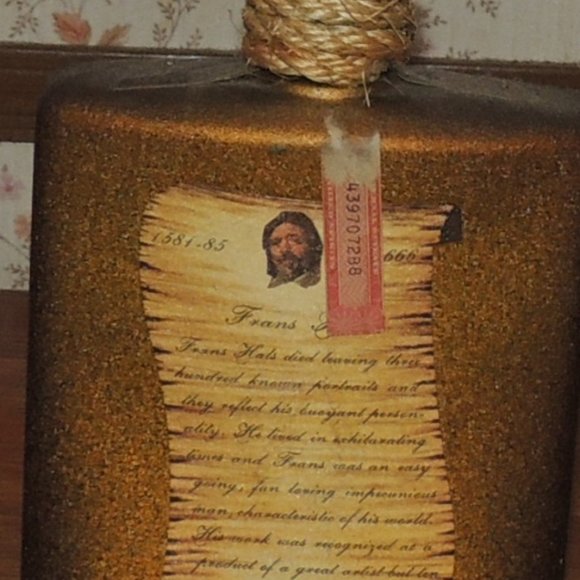 439707288
1581-85
666
Frans
Frans Hals died leaving three
hundred known portraits and
they reflect his buoyant person-
ality. He lived in exhilarating
times and Frans was an easy
going, fun loving impecunious
man, characteristic of his world.
His work was recognized as a
product of a great artist but ten